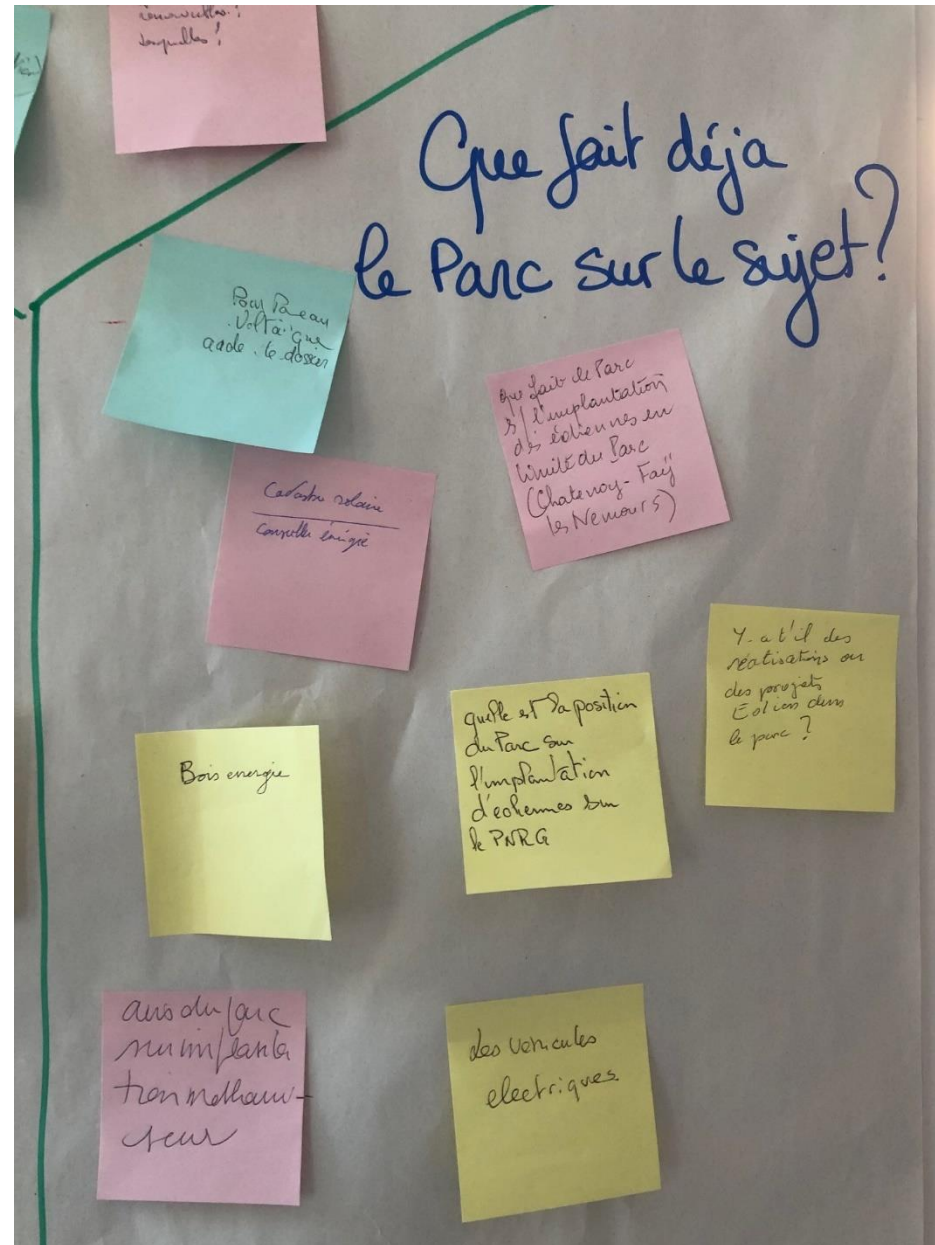 Que fait déja
le Parc sur le sujet?
Pour
Voltaïque
aide le dossier
que fait le Parc
s/ l'implantation
des éoliennes en
limite du Parc
(Chatenoy - Faÿ
les Nemours)
Cadastre solaire
conseiller énergie
Y-a t'il des
réalisations ou
des projets
Eolions dans
le parc ?
quelle est la position
du Parc sur
l'implantation
d'eoliennes sur
le PNRG
Bois energie
avis du parc
sur implanta
tion méthani-
seur
des vehicules
electriques